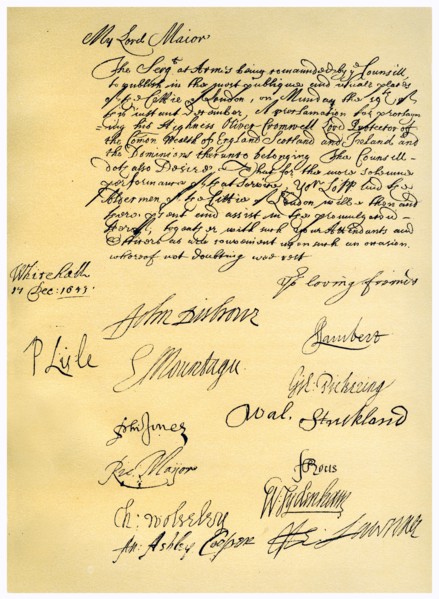 My Lord Maior
The Serg.t at Armes being comaunded by y.e Counsill
to publish in the most publique and usuall places
of the Cittie of London, on Munday the 19.th of
this instant December, A proclamation for proclam
=ing his Highness Oliver Cromwell Lord Protector of
the Comon Wealth of England Scotland and Ireland and
the Dominions thereunto belonging The Counsill
doe also Desire That for the more solemne
performance of that Service, Yo.r Lo.pp and the
Aldermen of the Cittie of London will be then and
there present and assist in the
with such your Attendants and
Officers as are convenient upon such an occasion.
whereof not doubting wee rest
Yo.r loving friends
Whitehall
17 Dec: 1653.
John Disbrow
Lambert
P Lisle
E Mountagu
Gil: Pickering
Wal. Strickland
John Jones
Ric. Major
F Rous
W: Sydenham
Ch: Wolseley
An: Ashley Cooper
He: Lawrence